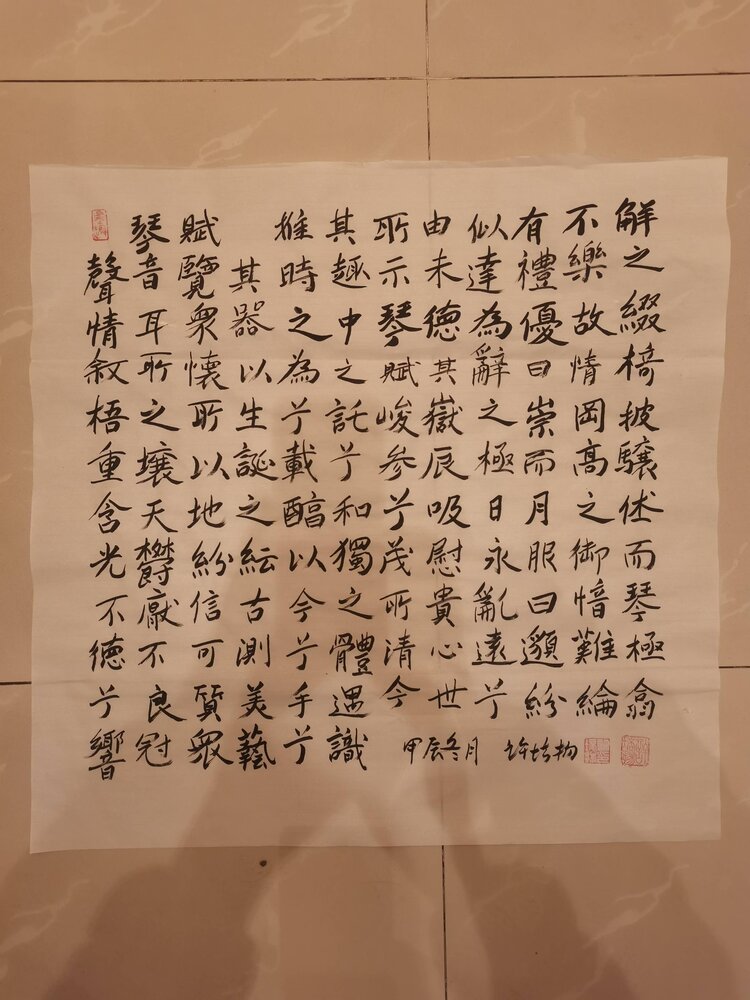 琴賦推其所由似有不解
聲音覽其時趣示未達禮樂之
情耳衆器之中琴德為優故綴
叙所懷以為之賦其辭曰情椅
梧之所生兮託峻嶽之崇岡披
重壤以誕載兮参辰極而高驤
含天地之醕和兮吸日月之休
光欝紛紜以獨茂慰永服御而
不厭信古今之所貴亂曰愔琴
德不可測兮體清心遠邈難極
兮良質美手遇今世兮紛綸翕
響冠衆藝識
甲辰冬月 许培构